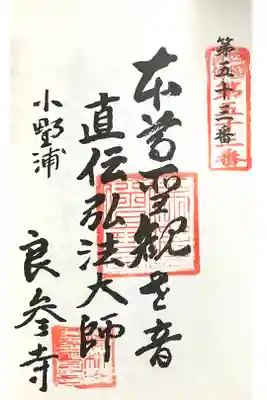 第五十三番
本尊聖観世音
直伝弘法大師
小野浦
良参寺